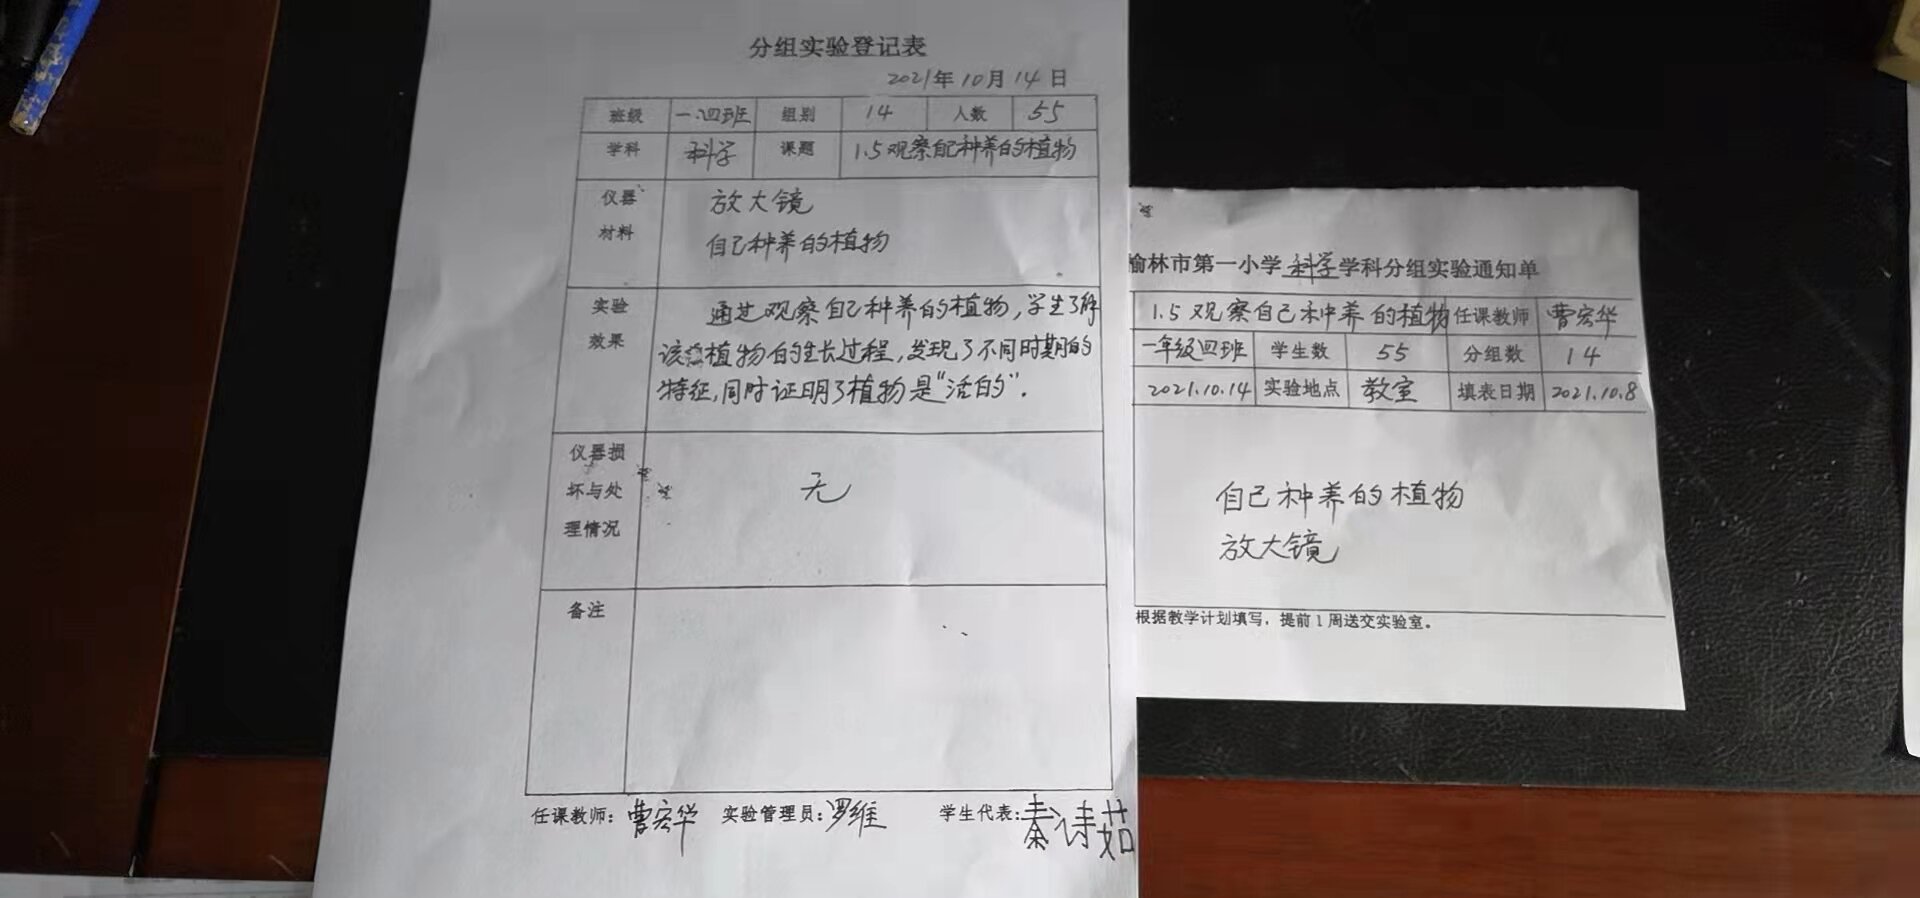 分组实验登记表
2021年10月14日
班级 一.四班 组别 14 人数 55
学科 科学 课题 1.5观察自己种养的植物
仪器 放大镜
材料 自己种养的植物
实验 通过观察自己种养的植物，学生了解
效果 该植物的生长过程，发现了不同时期的
特征，同时证明了植物是“活的”.
仪器损
坏与处 无
理情况
备注
任课教师：曹宏华 实验管理员：罗维 学生代表：秦诗茹
榆林市第一小学科学学科分组实验通知单
1.5观察自己种养的植物 任课教师 曹宏华
一年级四班 学生数 55 分组数 14
2021.10.14 实验地点 教室 填表日期 2021.10.8
自己种养的植物
放大镜
根据教学计划填写，提前1周送交实验室。